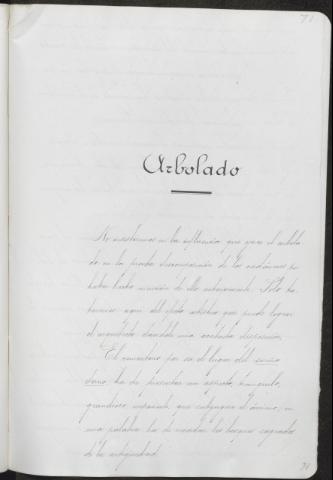 71
Arbolado
No insistiremos en la influencia que para el arbola-
do en la pronta descomposición de los cadáveres por
haber hecho mención de ello anteriormente. Solo ha-
blaremos aquí del efecto artístico que puede lograr
el cementerio dándole una acertada disposición.
El cementerio por ser el lugar del sueño
eterno ha de presentar un aspecto tranquilo,
grandioso, imponente, que subyugue el ánimo, en
una palabra ha de recordar los bosques sagrados
de la antigüedad.
71